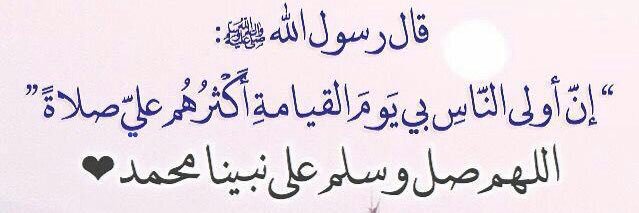 قال رسول الله ﷺ:
“إنّ أولى النّاسِ بي يَومَ القيامةِ أَكْثرُهُم عليّ صلاةً”
اللهم صل وسلم على نبينا محمد ❤